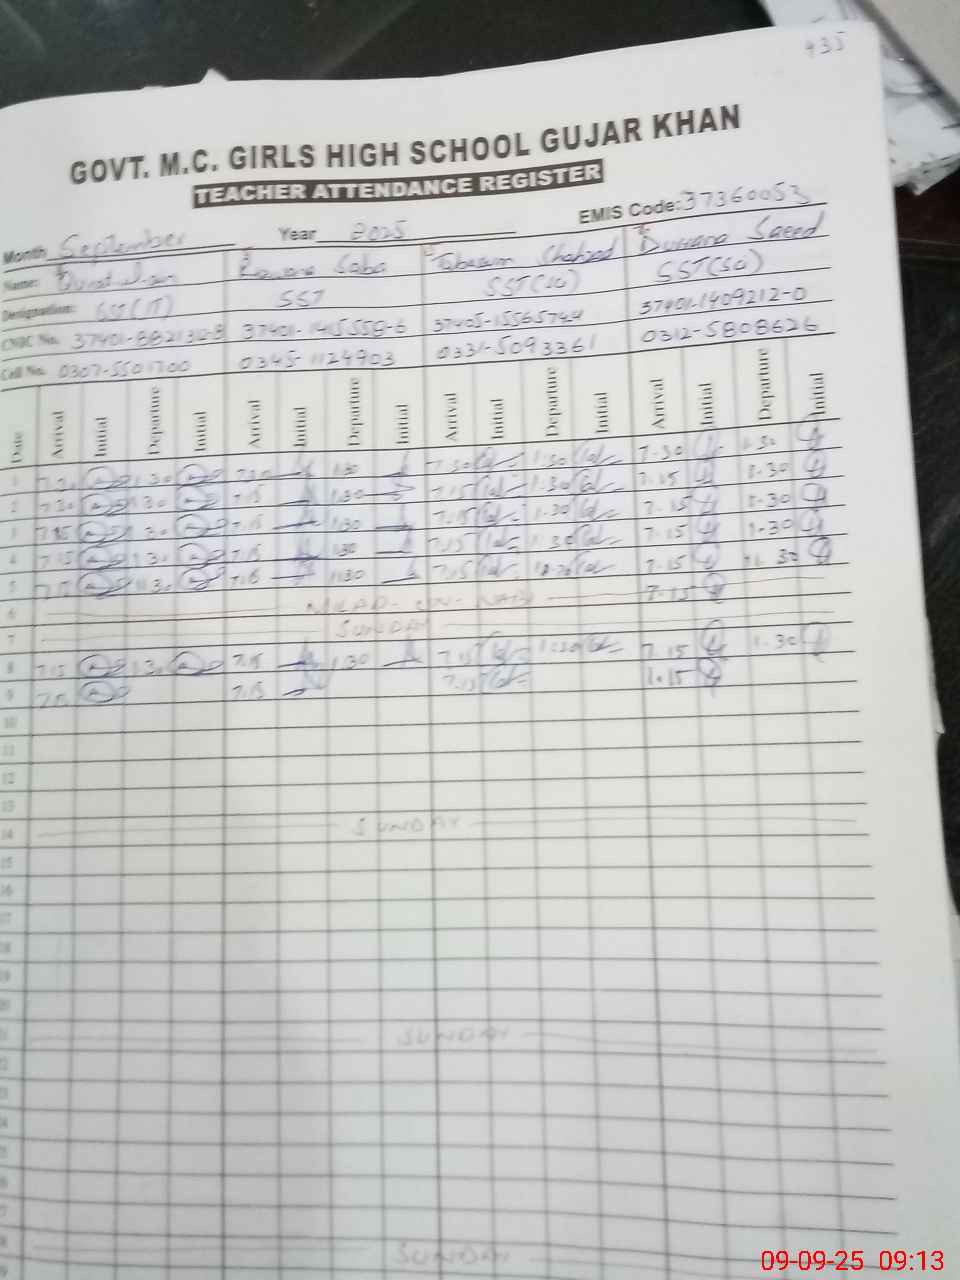 435
GOVT. M.C. GIRLS HIGH SCHOOL GUJAR KHAN
TEACHER ATTENDANCE REGISTER
EMIS Code: 37360053
Month September Year 2025
Name: Saba Tabasum Shahzad Saeed
Designation: SST(IT) SST SST(SC) SST(SC)
CNIC No. 37401-8821312-8 37401-1415558-6 37405- 37401-1409212-0
Cell No. 0307-5501700 0345-1124903 0331-5093361 0312-5808626
Date Arrival Initial Departure Initial Arrival Initial Departure Initial Arrival Initial Departure Initial Arrival Initial Departure Initial
1 7.30 1.30 7.30 1:30 7.30 1.30 7.30 1.30
2 7.30 1.30 7.15 1:30 7.15 1.30 7.15 1.30
3 7.15 1.30 7.15 1:30 7.15 1.30 7.15 1.30
4 7.15 1.30 7.15 1:30 7.15 1.30 7.15 1.30
5 7.15 1.30 7.15 1:30 7.15 7.15 30
6 MILAD- UN- NABI 7.15
7 SUNDAY
8 7.15 1.30 7.15 1:30 7.15 1:30 7.15 1.30
9 7.15 7.15 7.15 1.15
10
11
12
13
14 SUNDAY
15
16
17
18
19
20
21 SUNDAY
22
23
24
25
26
27
28 SUNDAY
29
09-09-25 09:13